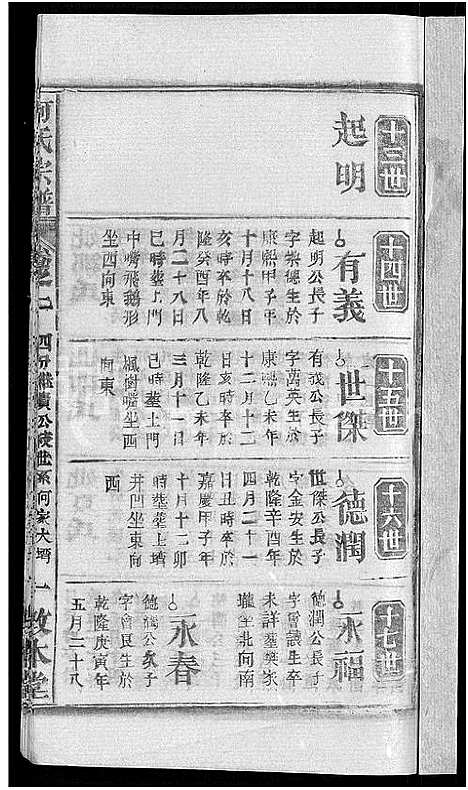 十三世
起明
十四世
有義
起明公長子
字崇德生於
康熙甲子年
十月十八日
亥時卒於乾
隆癸酉年八
月二十八日
巳時塟上門
中嘴飛鵝形
坐西向東
十五世
世傑
有義公長子
字萬英生於
康熙乙未年
十二月十二
日亥時卒於
乾隆乙未年
三月十一日
巳時塟上門
楓樹嘴坐西
向東
十六世
德潤
世傑公長子
字金安生於
乾隆辛酉年
四月二十一
日丑時卒於
嘉慶甲子年
十月十二卯
時塟塟上壻
井凹坐東向
西
十七世
永福
德潤公長子
字會議生卒
未詳塟樊家
壠坐北向南
永春
德潤公次子
字會良生於
乾隆庚寅年
五月二十八
何氏宗譜
卷之二
四分
公陵世系何家大壻
一
敦本堂